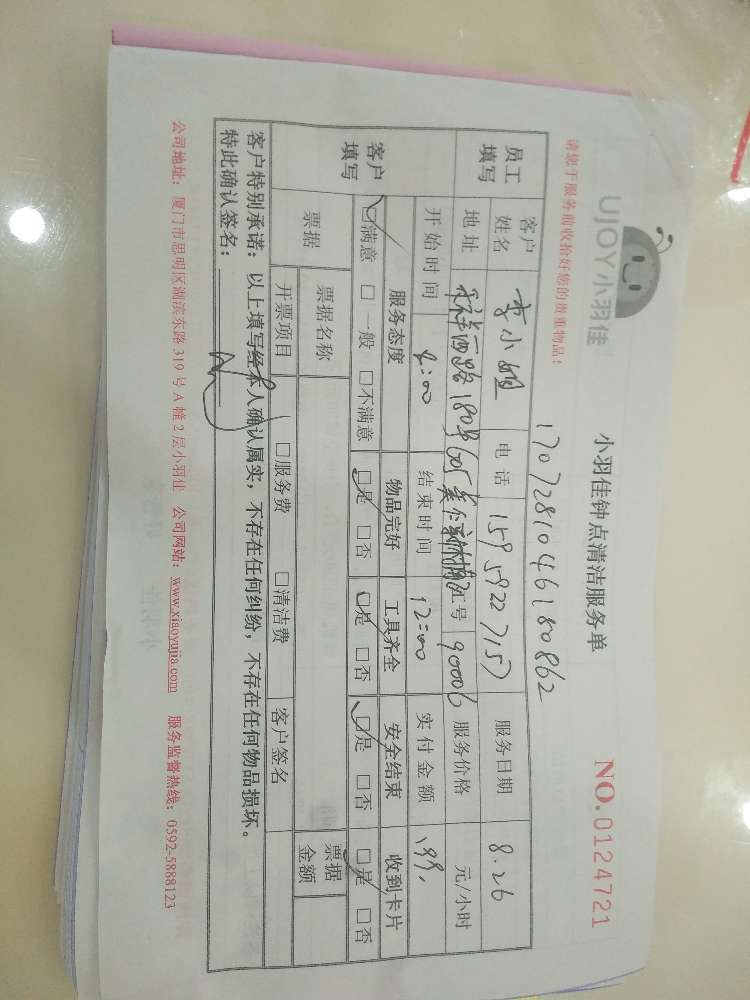 UJOY小羽佳
小羽佳钟点清洁服务单
NO.0124721
请您于服务前收拾好您的贵重物品!
1707281046180862
员工填写 客户姓名 李小姐 电话 15959227157 服务日期 8.26
地址 祥西路180号605 工号 90006 服务价格 元/小时
开始时间 8:00 结束时间 12:00 实付金额 199.
客户填写 服务态度 物品完好 工具齐全 安全结束 收到卡片
□满意 □一般 □不满意 □是 □否 □是 □否 □是 □否 □是 □否
票据 票据名称 票据金额
开票项目 □服务费 □清洁费 客户签名
客户特别承诺:以上填写经本人确认属实,不存在任何纠纷,不存在任何物品损坏。
特此确认签名:
公司地址:厦门市思明区湖滨东路319号A幢2层小羽佳 公司网站:www.xiaoyujia.com 服务监督热线:0592-5888123